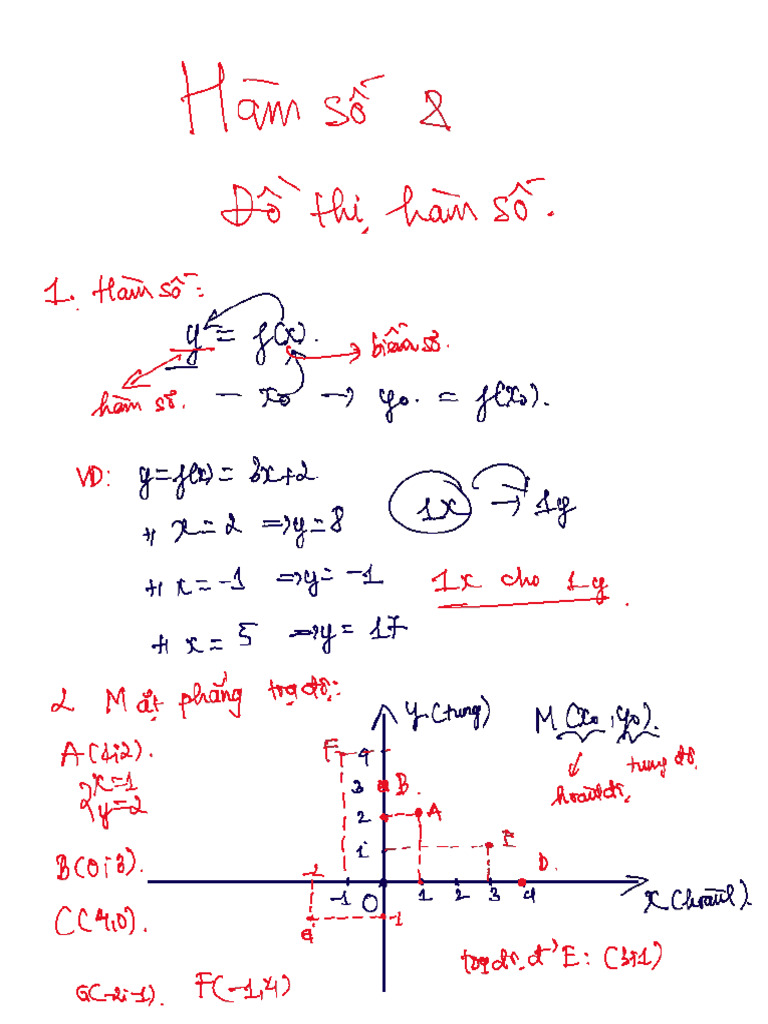 Hàm số &
Đồ thị hàm số.
1. Hàm số:
y = f(x).
biến số.
hàm số.
- x₀ → y₀ = f(x₀).
VD: y=f(x) = 3x+2
1x → 1y
+ x=2 ⇒y=8
+ x=-1 ⇒y=-1
1x cho 1y.
+ x=5 ⇒y=17
2 Mặt phẳng tọa độ:
y (tung)
M(x₀; y₀).
hoành độ
tung độ
A(1;2).
x=1
y=2
B(0;3).
C(4;0).
G(-2;-1).
F(-1;4)
F 4
3 B.
2 A
1 E
D.
-2 -1 O 1 2 3 4
x (hoành).
G -1
tọa độ đ' E: (3;1)